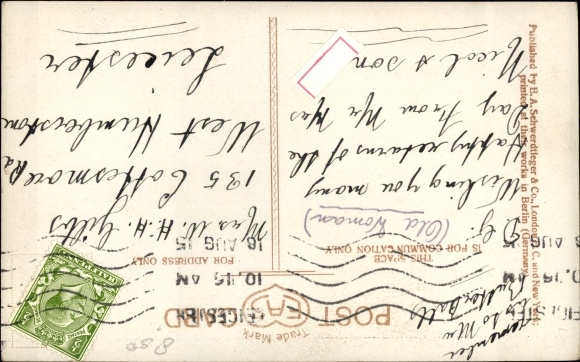 POST CARD
Trade Mark
EAS
THIS SPACE
IS FOR COMMUNICATION ONLY
FOR ADDRESS ONLY
LEICESTER
10.15 AM
18 AUG 15
10.15
AUG 15
remember
to Mr
(Old Woman)
Wishing you many
Happy returns of the
Day from Mr & Mrs
Nicol & son
Mrs W. H. H. Gibbs
135 Cottesmore Rd
West Humberstone
Leicester
Published by E. A. Schwerdtfeger & Co., London E. C. and New York
printed at their works in Berlin (Germany.